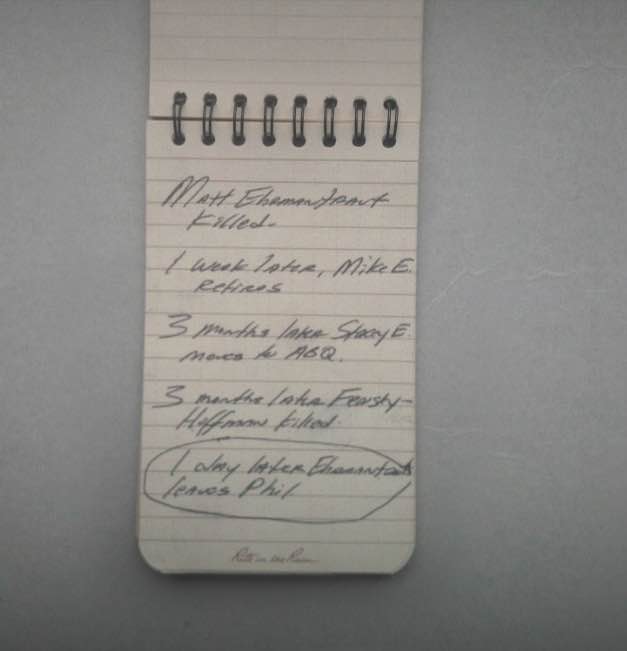 Matt Ehrmantraut
Killed.
1 week later, Mike E.
retires
3 months later Stacey E.
moves to ABQ.
3 months later Fensky-
Hoffman killed.
1 day later Ehrmantraut
leaves Phil
Rite in the Rain